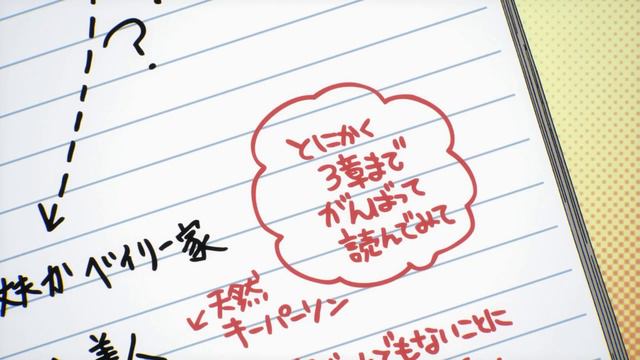 ？
とにかく
3章まで
がんばって
読んでみて
ベイリー家
天然
キーパーソン
美人
でもないことに